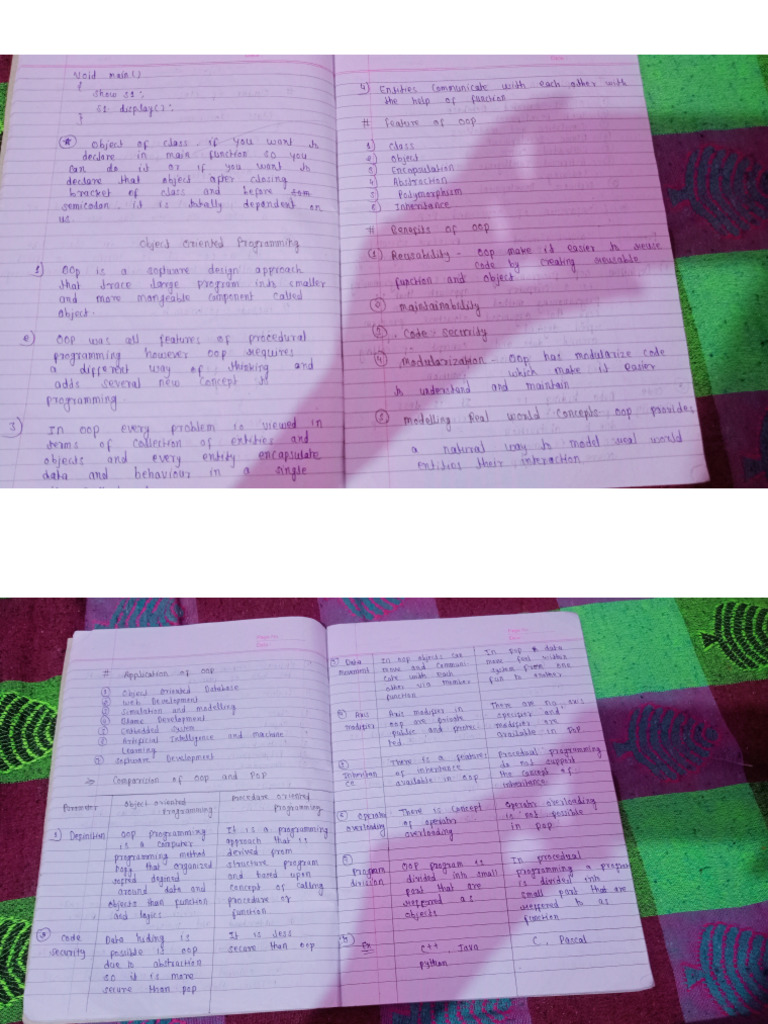 Void main()
{
show s1;
s1. display();
}
* Object of class, if you want to
declare in main function so you
can do it or if you want to
declare that object after closing
bracket of class and before
semicolon, it is totally dependent on
us.
Object Oriented Programming
1) OOP is a software design approach
that large program into smaller
and more component called
object.
2) OOP was all features of procedural
programming however oop requires
a different way of thinking and
adds several new concept to
programming.
3) In oop every problem is viewed in
terms of collection of entities and
objects and every entity encapsulate
data and behaviour in a single
4) Entities communicate with each other with
the help of function
# Feature of OOP
1) Class
2) Object
3) Encapsulation
4) Abstraction
5) Polymorphism
6) Inheritance
# Benefits of OOP
(1) Reusability - OOP make it easier to reuse
code by creating reusable
function and object
(2) maintainability
(3) Code security
(4) Modularization - OOP has modularize code
which make it easier
to understand and maintain
(5) modelling Real world concepts OOP provides
a natural way to model real world
entities their interaction
# Application of OOP
(1) Object Oriented Database
(2) Web Development
(3) Simulation and modelling
(4) Game Development
(5) Embedded System
(6) Artificial Intelligence and machine
Learning
(7) Software Development
⇒ Comparision of OOP and POP
Parameter Object oriented programming Procedure oriented programming
1) Definition OOP programming It is a programming
is a computer approach that is
programming method derived from
that organized structure program
around data and and based upon
objects than function concept of calling
and logics procedure or
function
2) Code Data hiding is It is less
security possible is OOP secure than oop
due to abstraction
so it is more
secure than pop
3) Data In OOP objects can In POP data
movement move and communi- move feel within
cate with each system from one
other via member fun to another
function
4) Axis Axis modifier in There are no axis
modifier oop are private
public and modifier are
available in POP
There is a feature Procedual programming
of inheritance do not support
available in oop the concept of
inheritance
6) Operator There is concept Operator overloading
overloading of operator is not possible
overloading in pop
Program OOP program is In procedual
division divided into small programming a
part that are is divided into
reffered as small part that are
objects reffered to as
function
Ex C++, Java C, Pascal
python